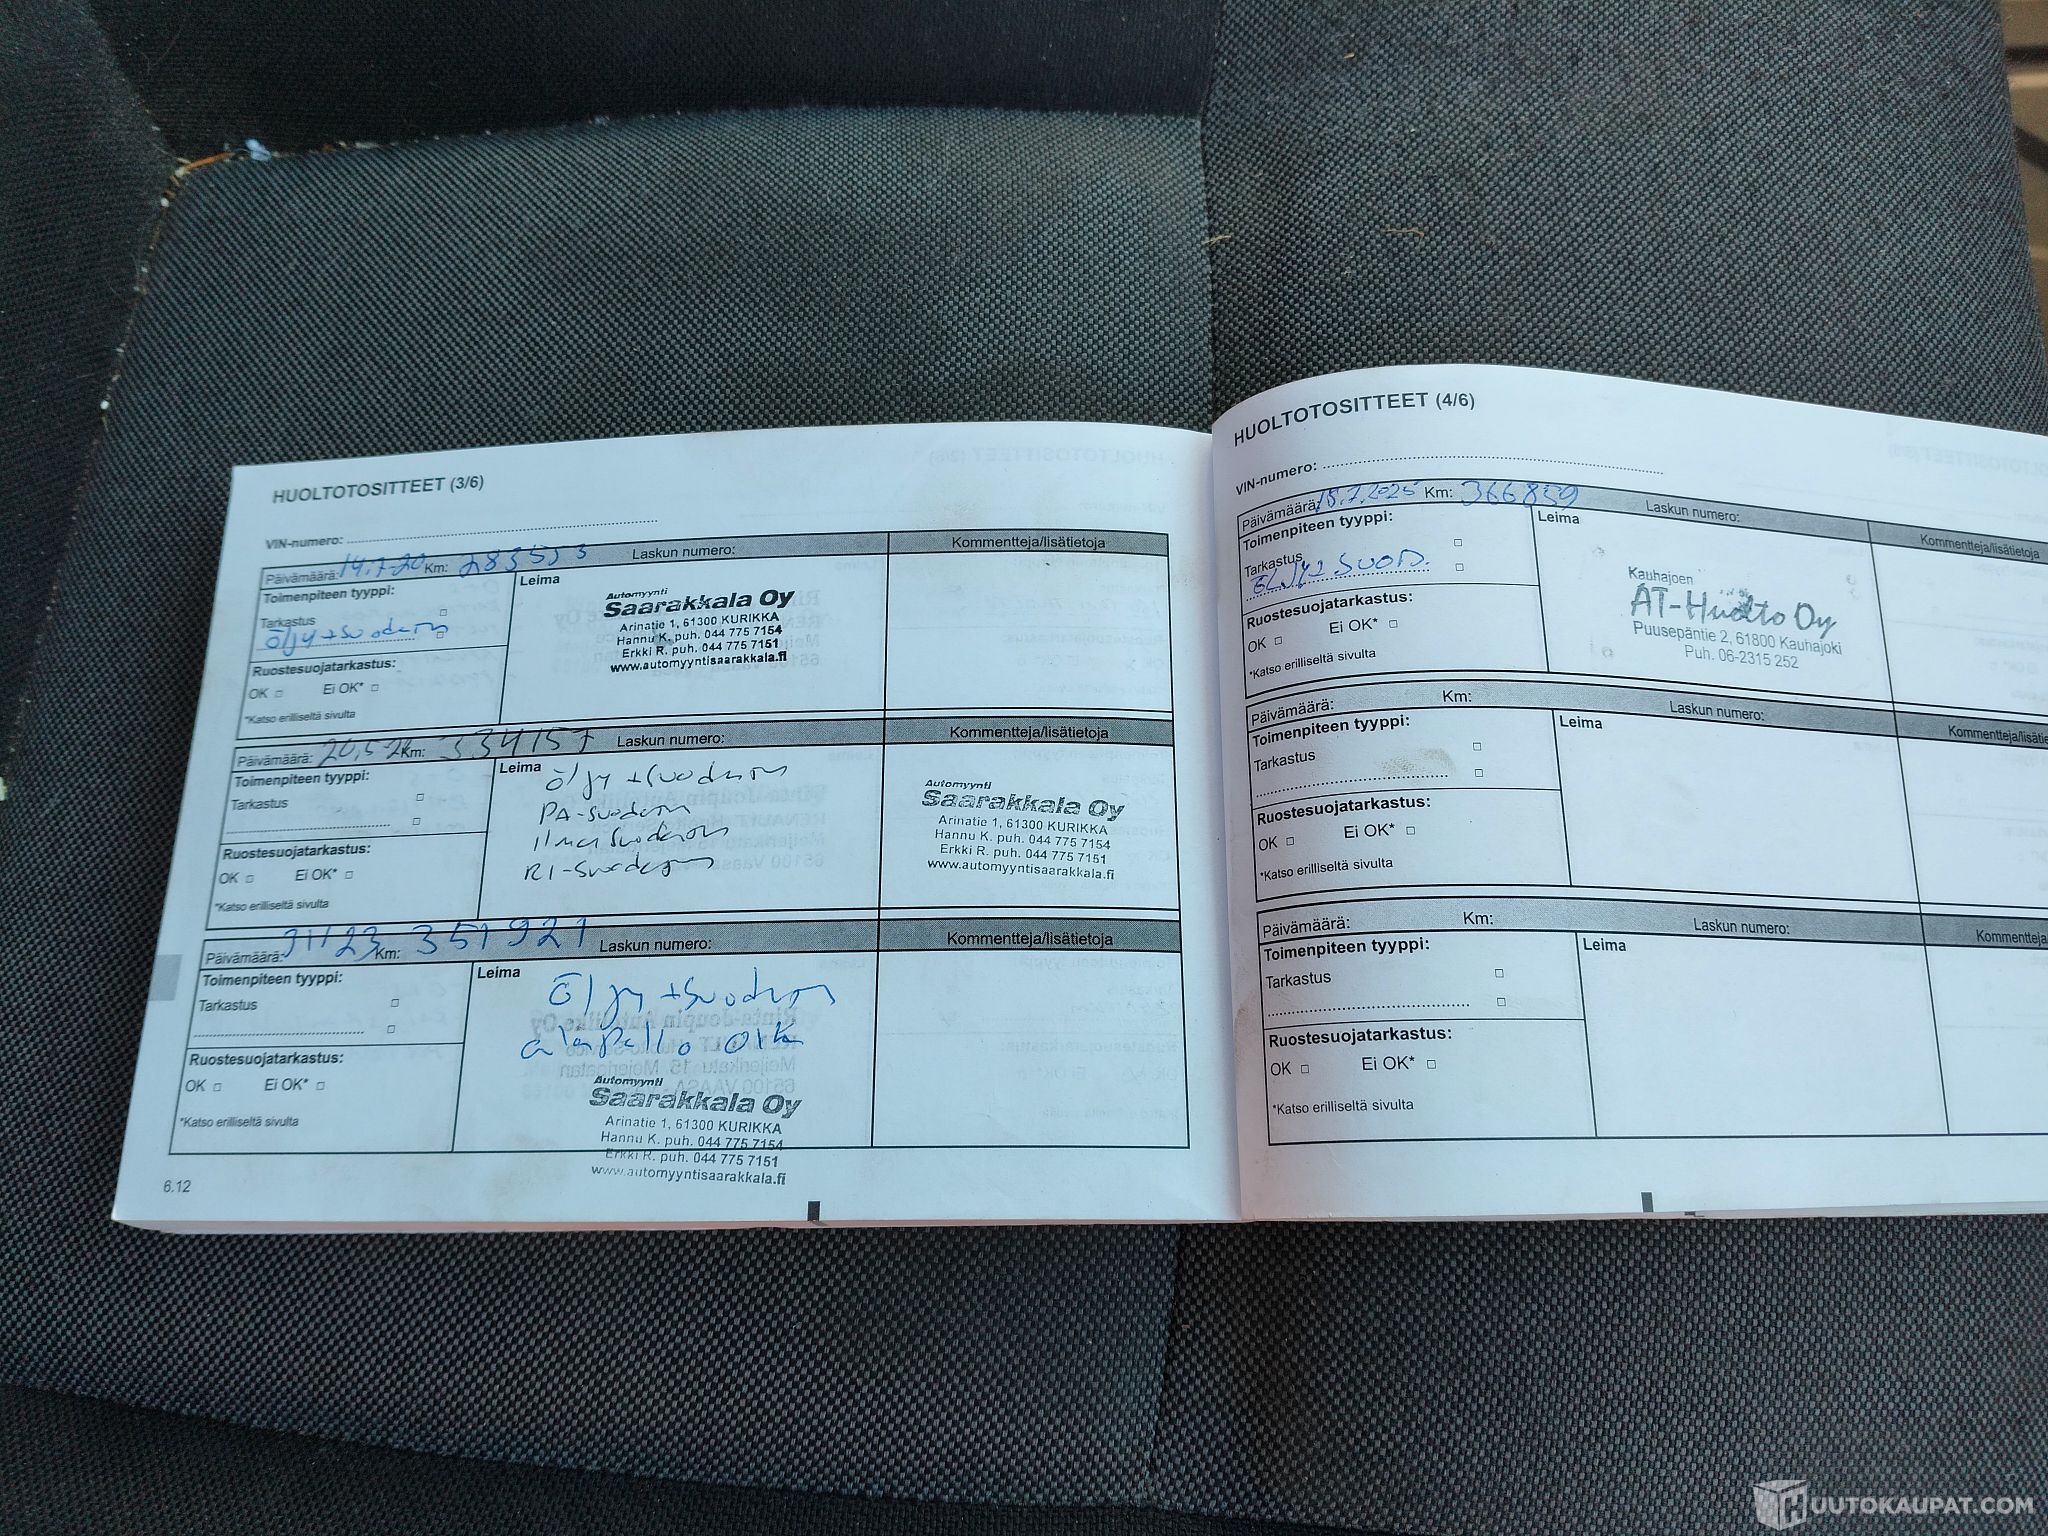 HUOLTOTOSITTEET (3/6)
VIN-numero:
Päivämäärä: 14.7.20 Km: 283553 Laskun numero:
Kommentteja/lisätietoja
Toimenpiteen tyyppi:
Tarkastus
öljy + suodatin
Ruostesuojatarkastus:
OK Ei OK*
*Katso erilliseltä sivulta
Leima
Automyynti
Saarakkala Oy
Arinatie 1, 61300 KURIKKA
Hannu K. puh. 044 775 7154
Erkki R. puh. 044 775 7151
www.automyyntisaarakkala.fi
Päivämäärä: Km: 334157 Laskun numero:
Kommentteja/lisätietoja
Toimenpiteen tyyppi:
Tarkastus
Ruostesuojatarkastus:
OK Ei OK*
*Katso erilliseltä sivulta
Leima
öljy + suodatin
PA-suodatin
ilmansuodatin
RI-suodatin
Automyynti
Saarakkala Oy
Arinatie 1, 61300 KURIKKA
Hannu K. puh. 044 775 7154
Erkki R. puh. 044 775 7151
www.automyyntisaarakkala.fi
Päivämäärä: Km: 351921 Laskun numero:
Kommentteja/lisätietoja
Toimenpiteen tyyppi:
Tarkastus
Ruostesuojatarkastus:
OK Ei OK*
*Katso erilliseltä sivulta
Leima
öljy + suodatin
alapallo
Automyynti
Saarakkala Oy
Arinatie 1, 61300 KURIKKA
Hannu K. puh. 044 775 7154
Erkki R. puh. 044 775 7151
www.automyyntisaarakkala.fi
6.12
HUOLTOTOSITTEET (4/6)
VIN-numero:
Päivämäärä: 18.7.2025 Km: 366859 Laskun numero:
Kommentteja/lisätietoja
Toimenpiteen tyyppi:
Tarkastus
ÖLJY+SUOD.
Ruostesuojatarkastus:
OK Ei OK*
*Katso erilliseltä sivulta
Leima
Kauhajoen
AT-Huolto Oy
Puusepäntie 2, 61800 Kauhajoki
Puh. 06-2315 252
Päivämäärä: Km: Laskun numero:
Toimenpiteen tyyppi:
Tarkastus
Ruostesuojatarkastus:
OK Ei OK*
*Katso erilliseltä sivulta
Leima
Päivämäärä: Km: Laskun numero:
Kommentteja
Toimenpiteen tyyppi:
Tarkastus
Ruostesuojatarkastus:
OK Ei OK*
*Katso erilliseltä sivulta
Leima
HUUTOKAUPAT.COM